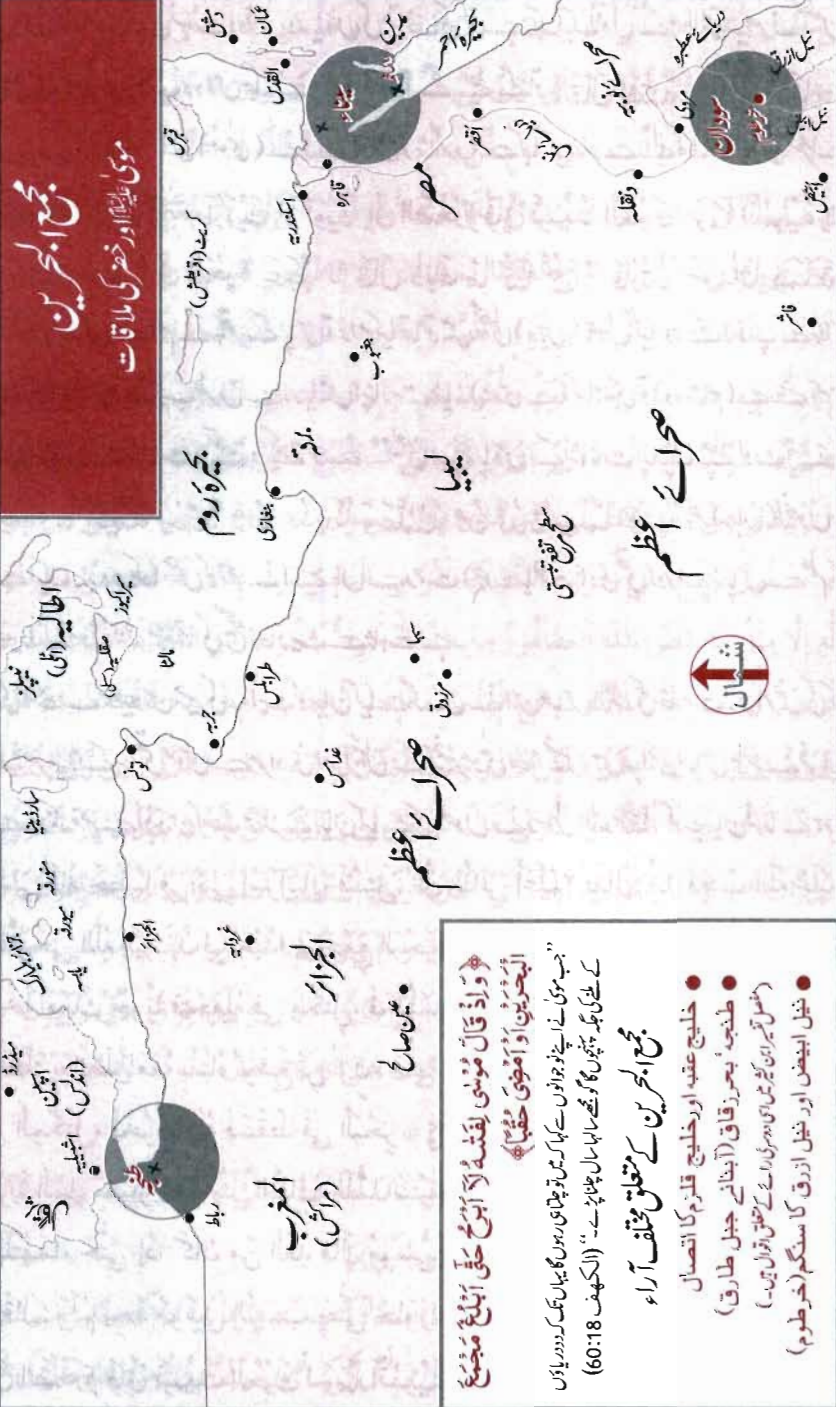 مجمع البحرین
موسیٰ علیہ السلام اور خضر کی ملاقات
دمشق
عمان
القدس
قبرص
سیناء
مدین
بحیرہ احمر
قاہرہ
اسکندریہ
مصر
اقصر
صحرائے نوبیہ
دریائے عطبرہ
نیل ازرق
نیل ابیض
سوڈان
خرطوم
مروی
دنقلہ
ابیض
فاشر
کریٹ (اقریطش)
جغبوب
بحیرہ روم
برقہ
بنغازی
لیبیا
سطح مرتفع تبستی
صحرائے اعظم
شمال
اطالیہ (اٹلی)
نیپلز
سیراکیوز
صقلیہ (سسلی)
مالٹا
طرابلس
سبہا
مرزوق
جربہ
تونس
غدامس
صحرائے اعظم
سارڈینیا
منورقہ
میورقہ
یابسہ
جزائر بلیارک
الجزائر
غردایہ
الجزائر
عین صالح
میڈرڈ
اسپین
(اندلس)
اشبیلیہ
طنجہ
رباط
المغرب
(مراکش)
﴿وَاِذْ قَالَ مُوْسٰى لِفَتٰىهُ لَآ اَبْرَحُ حَتّٰٓى اَبْلُغَ مَجْمَعَ
الْبَحْرَيْنِ اَوْ اَمْضِيَ حُقُبًا﴾
”جب موسیٰ نے اپنے نوجوانوں سے کہا کہ میں تو چلتا ہی رہوں گا یہاں تک کہ دو دریاؤں
کے ملنے کی جگہ پہنچوں گا گو مجھے سالہا سال چلنا پڑے۔“ (الکھف 60:18)
مجمع البحرین کے متعلق مختلف آراء
● خلیج عقبہ اور خلیج قلزم کا اتصال
● طنجہ‘ بحر زقاق (آبنائے جبل طارق)
(مفصل تفسیر ابن کثیر میں اسی دوسری رائے کے متعلق اقوال ہیں۔)
● نیل ابیض اور نیل ازرق کا سنگم (خرطوم)